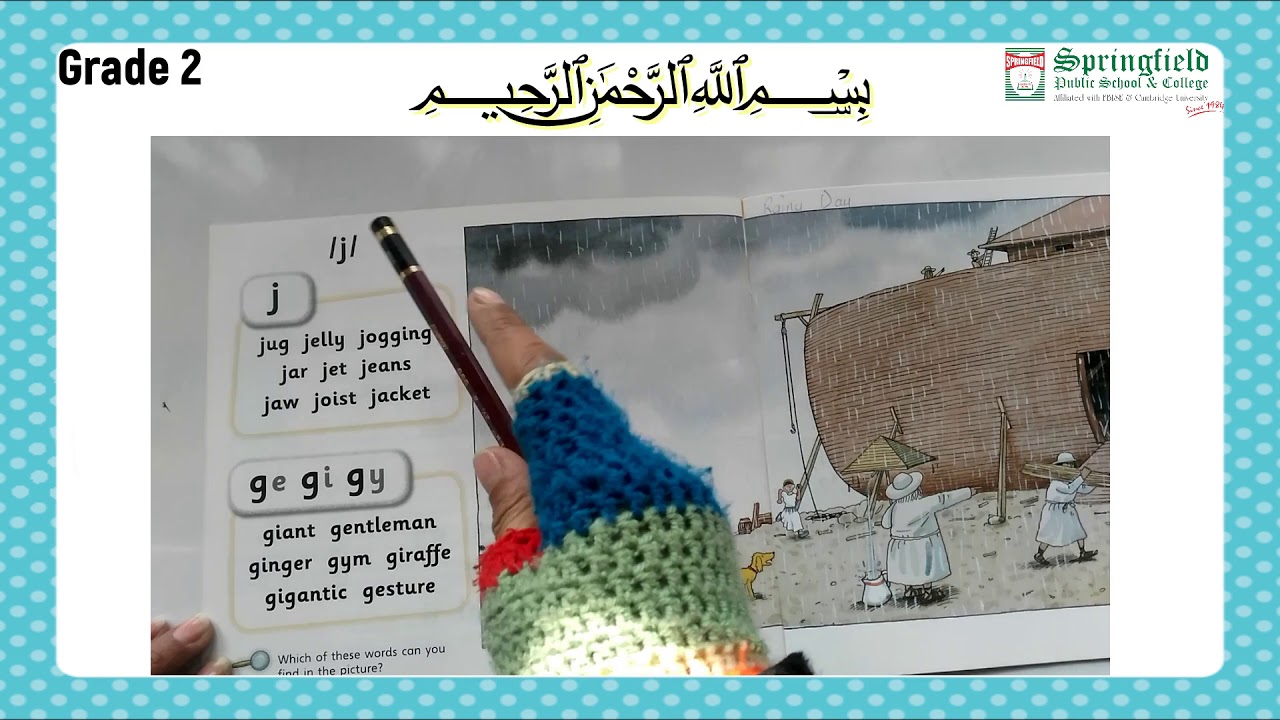 Grade 2
بِسْمِ ٱللَّٰهِ ٱلرَّحْمَٰنِ ٱلرَّحِيمِ
SPRINGFIELD
Springfield
Public School & College
Affiliated with FBISE & Cambridge University
Since 1984
Rainy Day
/j/
j
jug jelly jogging
jar jet jeans
jaw joist jacket
ge gi gy
giant gentleman
ginger gym giraffe
gigantic gesture
Which of these words can you
find in the picture?